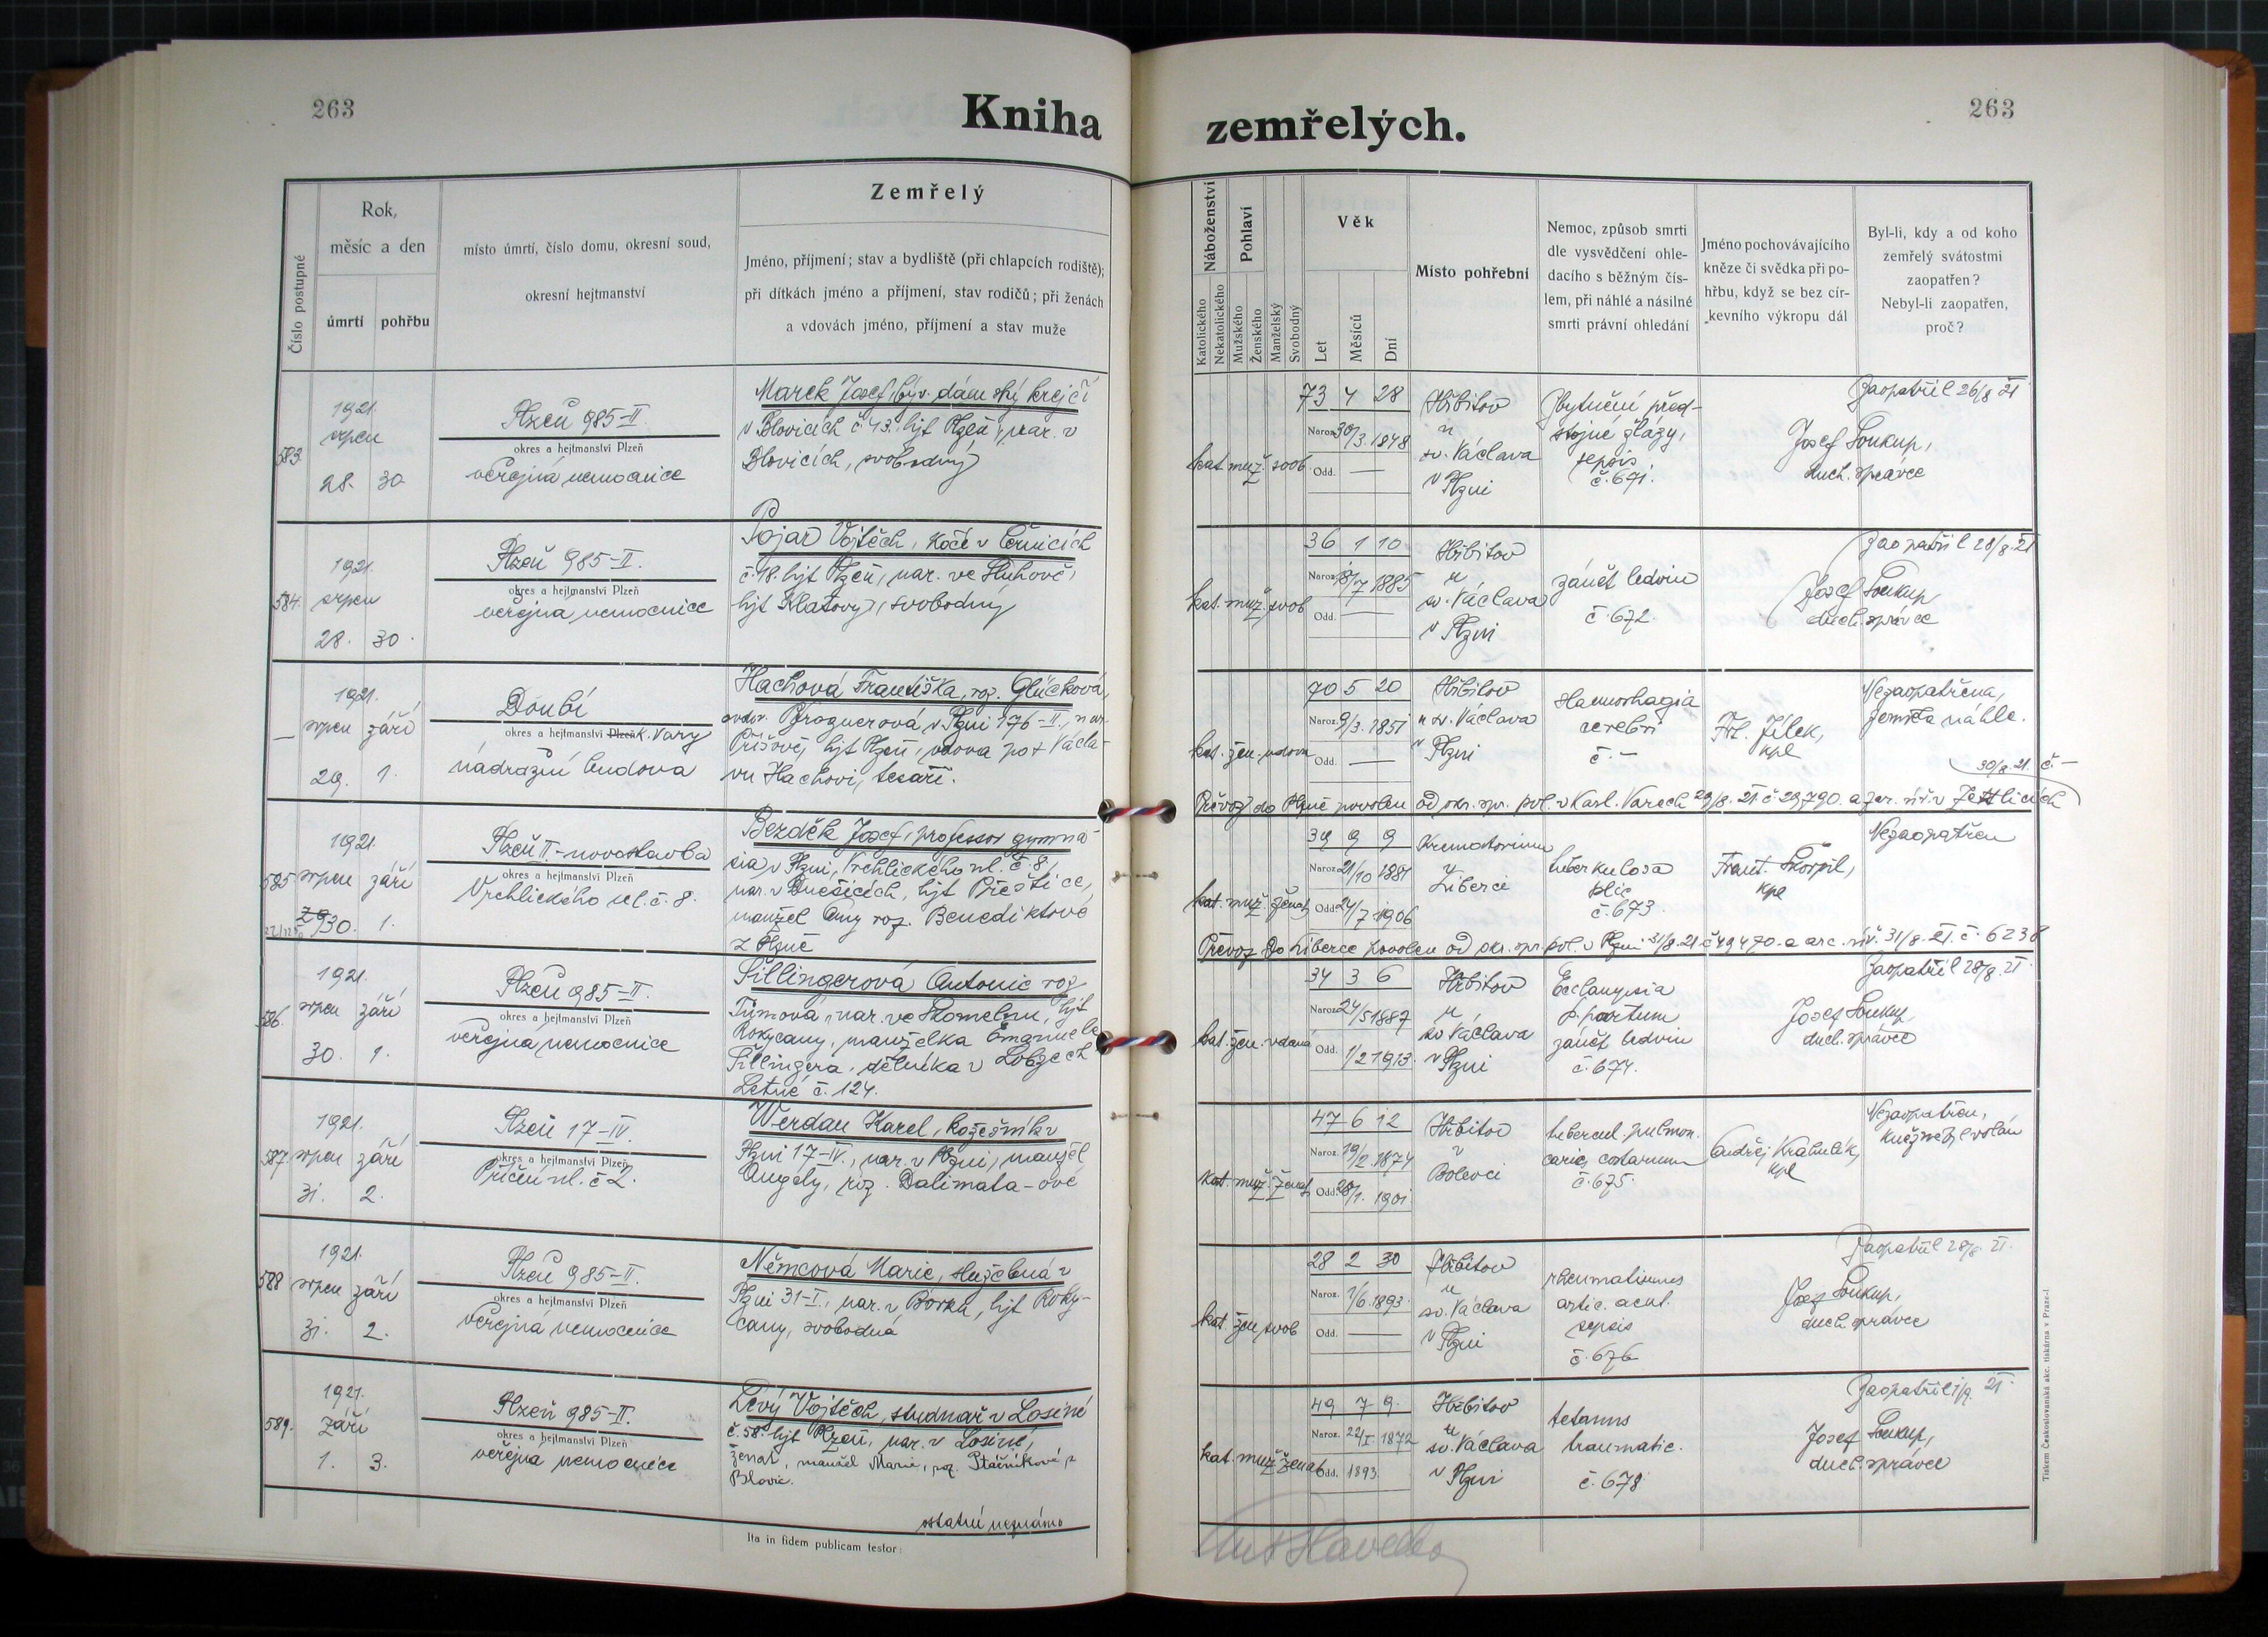 263
Kniha zemřelých.
263
Číslo postupné
Rok,
měsíc a den
úmrtí
pohřbu
místo úmrtí, číslo domu, okresní soud,
okresní hejtmanství
Zemřelý
Jméno, příjmení; stav a bydliště (při chlapcích rodiště);
při dítkách jméno a příjmení, stav rodičů; při ženách
a vdovách jméno, příjmení a stav muže
Náboženství
Katolického
Nekatolického
Pohlaví
Mužského
Ženského
Manželský
Svobodný
Věk
Let
Měsíců
Dní
Místo pohřební
Nemoc, způsob smrti
dle vysvědčení ohle-
dacího s běžným čís-
lem, při náhlé a násilné
smrti právní ohledání
Jméno pochovávajícího
kněze či svědka při po-
hřbu, když se bez cír-
kevního výkropu dál
Byl-li, kdy a od koho
zemřelý svátostmi
zaopatřen?
Nebyl-li zaopatřen,
proč?
583.
1921.
srpen
28. 30.
Plzeň 985-II.
okres a hejtmanství Plzeň
veřejná nemocnice
Marek Josef, býv. dámský krejčí
v Blovicích č. 13. hjt Plzeň, nar. v
Blovicích, svobodný
kat. muž. svob.
73 4 28
Naroz. 30/3. 1848
Odd. —
Hřbitov
u
sv. Václava
v Plzni
Zbytnění před-
stojné žlázy,
sepsis
č. 671.
Zaopatřil 26/8 21
Josef Soukup,
duch. správce
584.
1921.
srpen
28. 30.
Plzeň 985-II.
okres a hejtmanství Plzeň
veřejná nemocnice
Pojar Vojtěch, kočí v Černicích
č. 18. hjt Plzeň, nar. ve Hluhově,
hjt Klatovy, svobodný
kat. muž. svob
36 1 10
Naroz. 18/7 1885
Odd. —
Hřbitov
u
sv. Václava
v Plzni
zánět ledvin
č. 672.
Zaopatřil 28/8. 21
Josef Soukup
duch. správce
—
1921.
srpen září
29. 1.
Doubí
okres a hejtmanství Plzeň K. Vary
nádražní budova
Hachová Františka, roz. Glücková,
ovdov. Prognerová, v Plzni 176-II., nar.
Příšově, hjt Plzeň, vdova po + Václa-
vu Hachovi, tesaři.
kat. žen. vdova
70 5 20
Naroz. 9/3. 1851
Odd. —
Hřbitov
u sv. Václava
v Plzni
Haemorhagia
cerebri
č. —
Frt. Jílek,
kpl
Nezaopatřena,
zemřela náhle.
30/8. 21. č. —
Převoz do Plzně povolen od okr. spr. pol. v Karl. Varech 29/8. 21 č 29790. a far. úř. v Zettlicích
585
1921.
srpen září
29 30. 1.
Plzeň II.-novostavba
okres a hejtmanství Plzeň
Vrchlického ul. č. 8.
Bezděk Josef, professor gymna-
sia v Plzni, Vrchlického ul. č. 8,
nar. v Dnešicích, hjt Přeštice,
manžel Anny roz. Benediktové
z Plzně
kat. muž. ženat
39 9 9
Naroz. 21/10 1881
Odd. 24/7 1906
Krematorium
v
Liberci
tuberkulosa
plic
č. 673.
Frant. Škorpil,
kpl
Nezaopatřen
Převoz do Liberce povolen od okr. spr. pol. v Plzni 31/8. 21. č 49470. a arc. úř. 31/8. 21. č. 6238
586.
1921.
srpen září
30. 1.
Plzeň 985-II.
okres a hejtmanství Plzeň
veřejná nemocnice
Šillingerová Antonie roz
Tůmová, nar. ve Skomelnu, hjt
Rokycany, manželka Emanuele
Šillingera, dělníka v Lobzech
Letné č. 124.
kat. žen. vdaná
34 3 6
Naroz. 24/5 1887
Odd. 1/2 1913.
Hřbitov
u
sv Václava
v Plzni
Ecclampsia
p. partum
zánět ledvin
č. 674.
Zaopatřil 28/8. 21.
Josef Soukup
duch. správce
587.
1921.
srpen září
31. 2.
Plzeň 17-IV.
okres a hejtmanství Plzeň
Příční ul. č 2.
Werdan Karel, kožešník v
Plzni 17-IV., nar. v Plzni, manžel
Angely, roz. Dalimata-ové
kat. muž. ženat
47 6 12
Naroz. 19/2. 1874
Odd. 28/1. 1901.
Hřbitov
v
Bolevci
tubercul. pulmon.
caries costarum
č. 675.
Ondřej Krahulík,
kpl
Nezaopatřen,
kněz nebyl volán
588
1921.
srpen září
31. 2.
Plzeň 985-II.
okres a hejtmanství Plzeň
Veřejná nemocnice
Němcová Marie, služebná v
Plzni 31-I., nar. v Borku, hjt Roky-
cany, svobodná
kat. žen. svob
28 2 30
Naroz. 1/6. 1893.
Odd. —
Hřbitov
u
sv. Václava
v Plzni
rheumatismus
artic. acut.
sepsis
č. 676
Zaopatřil 28/8. 21.
Josef Soukup,
duch. správce
589.
1921.
září
1. 3.
Plzeň 985-II.
okres a hejtmanství Plzeň
veřejná nemocnice
Levý Vojtěch, studnař v Losiné
č. 58. hjt Plzeň, nar. v Losiné,
ženat, manžel Marie, roz. Ptáčníkové z
Blovic.
ostatní neznámo
kat. muž. ženat
49 7 9.
Naroz. 22/I. 1872
Odd. 1893.
Hřbitov
u
sv. Václava
v Plzni
tetanus
traumatic.
č. 678
Zaopatřil 1/9. 21.
Josef Soukup,
duch. správce
Ita in fidem publicam testor:
Tiskem Československá akc. tiskárna v Praze-I